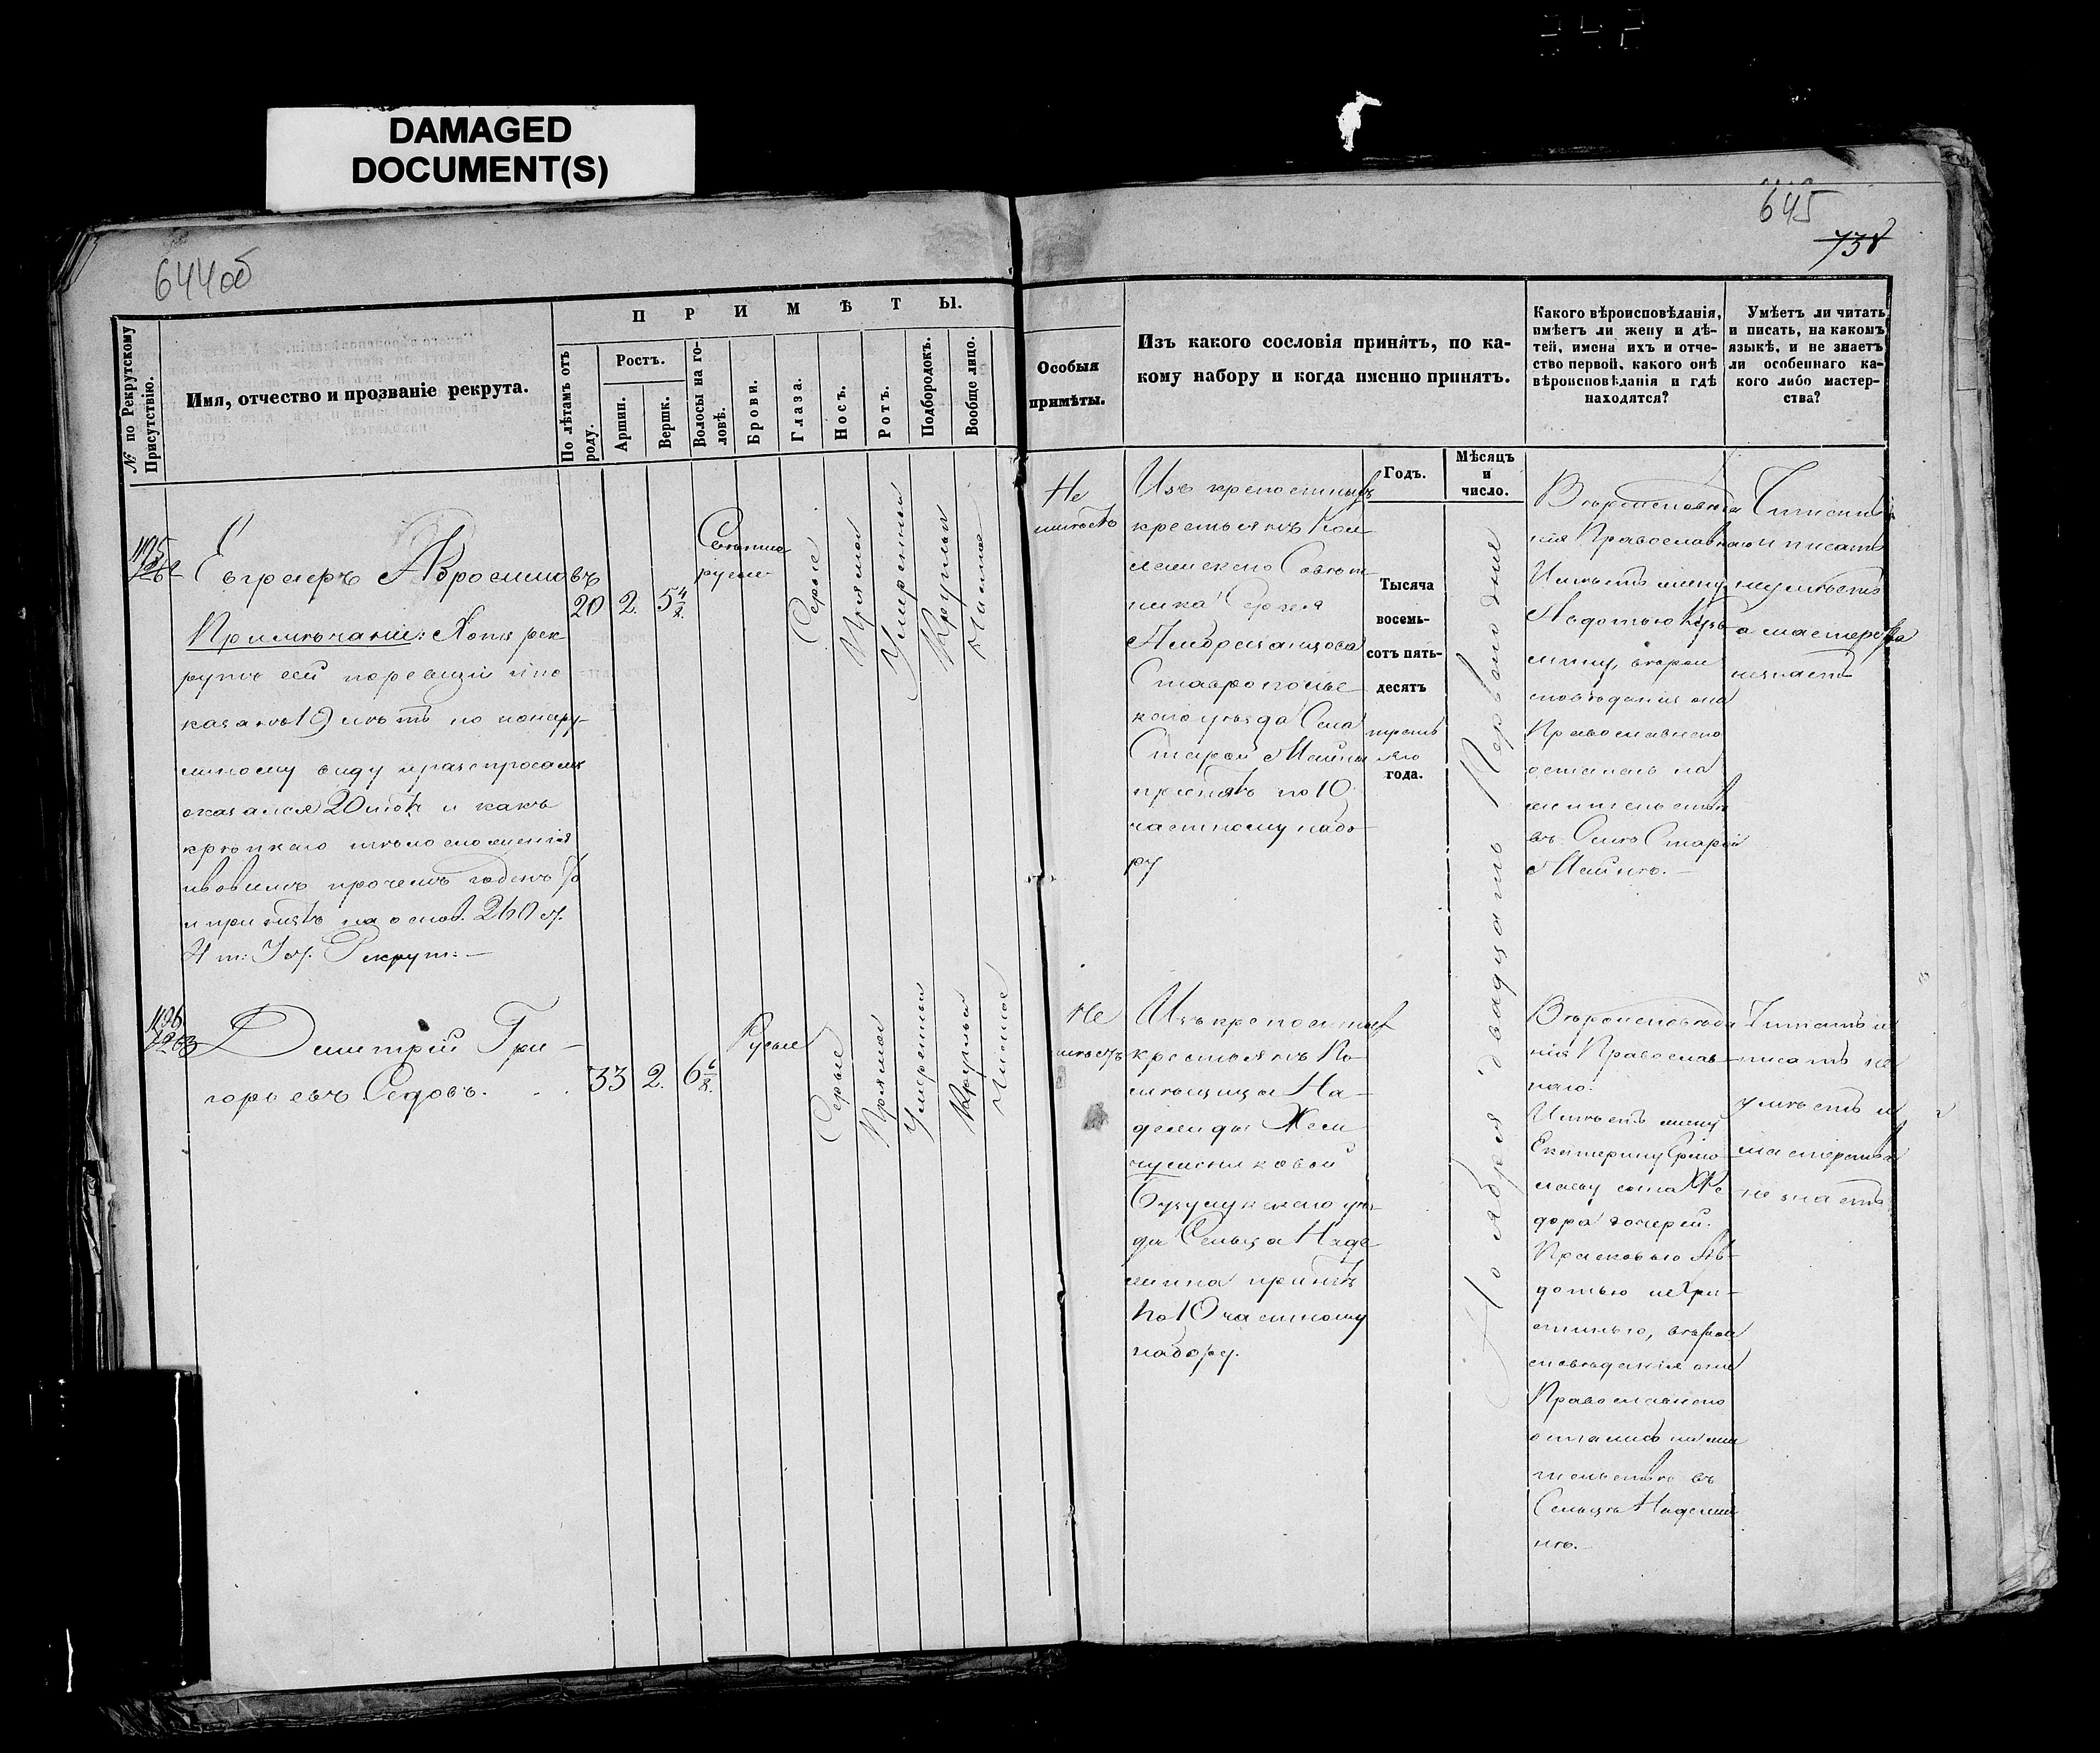 DAMAGED
DOCUMENT(S)
644об
645
738
№ по Рекрутскому
Присутствію.
Имя, отчество и прозваніе рекрута.
ПРИМѢТЫ.
По лѣтамъ отъ
роду.
Ростъ.
Аршин.
Вершк.
Волосы на го-
ловѣ.
Брови.
Глаза.
Носъ.
Ротъ.
Подбородокъ.
Вообще лицо.
Особыя
примѣты.
Изъ какого сословія принятъ, по ка-
кому набору и когда именно принятъ.
Годъ.
Мѣсяцъ
и
число.
Какого вѣроисповѣданія,
имѣетъ ли жену и дѣ-
тей, имена ихъ и отче-
ство первой, какого онѣ
вѣроисповѣданія и гдѣ
находятся?
Умѣетъ ли читать
и писать, на какомъ
языкѣ, и не знаетъ
ли особеннаго ка-
кого либо мастер-
ства?
1195
Евграфъ Абросимовъ
Примѣчаніе: Хотя рек
рутъ сей
казанъ 19 лѣтъ но по наруж-
ному виду
оказался 20 лѣтъ и какъ
крѣпкаго тѣлосложенія
прочемъ годенъ то
и принятъ на основ. 260 ст.
4 т: Уст. Рекрут:
20
2.
5 4/8.
Свѣтло
русые
Серые
Прямой
Умеренный
Круглый
Чистое
Не
имѣетъ
Изъ крепостныхъ
крестьянъ Кол
лежскаго Совѣт
ника Сергея
Ставрополь
скаго уѣзда Села
Старой Майны
принятъ по 10
частному набо-
ру
Тысяча
восемь-
сотъ пять-
десятъ
треть
яго
года.
Ноября двадцать Перваго дня
Вѣроисповѣда
нія Православнаго
Имѣетъ жену
Авдотью Кузь
мину, вѣроис
повѣданія она
Православнаго
осталась на
жительствѣ
въ Селѣ Старой
Майнѣ.
Читать
и писать
неумѣетъ
а мастерства
незнаетъ
1196
1263
Дмитрій Гри-
горьевъ Седовъ.
33
2.
6 6/8.
Русые
Серые
Прямой
Умеренный
Круглый
Чистое
Не
имѣетъ
Изъ крепостныхъ
крестьянъ По-
мѣщицы На-
дежды Жем
чужниковой
Бузулукскаго уѣз-
да Сельца Наде
жина принятъ
по 10 частному
набору.
Вѣроисповѣда
нія Православ-
наго.
Имѣетъ жену
Екатерину Ермо
лаеву сына Фе
дора дочерей.
Прасковью Ав-
дотью и Хри-
стинью, вѣрои
сповѣданія они
Православнаго
остались на жи
тельствѣ въ
Сельцѣ Надежи
нѣ.
Читать и
писать не
умѣетъ и
мастерства
не знаетъ